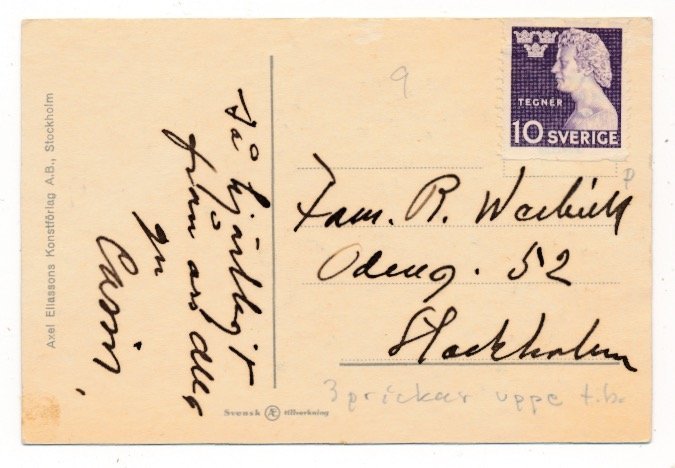 Axel Eliassons Konstförlag A.B., Stockholm
så hjärtligt
från oss alla
gm
9
TEGNÉR
10 SVERIGE
p
Fam. R.
Odeng. 52
Stockholm
3 prickar uppe t.b.
Svensk Æ tillverkning